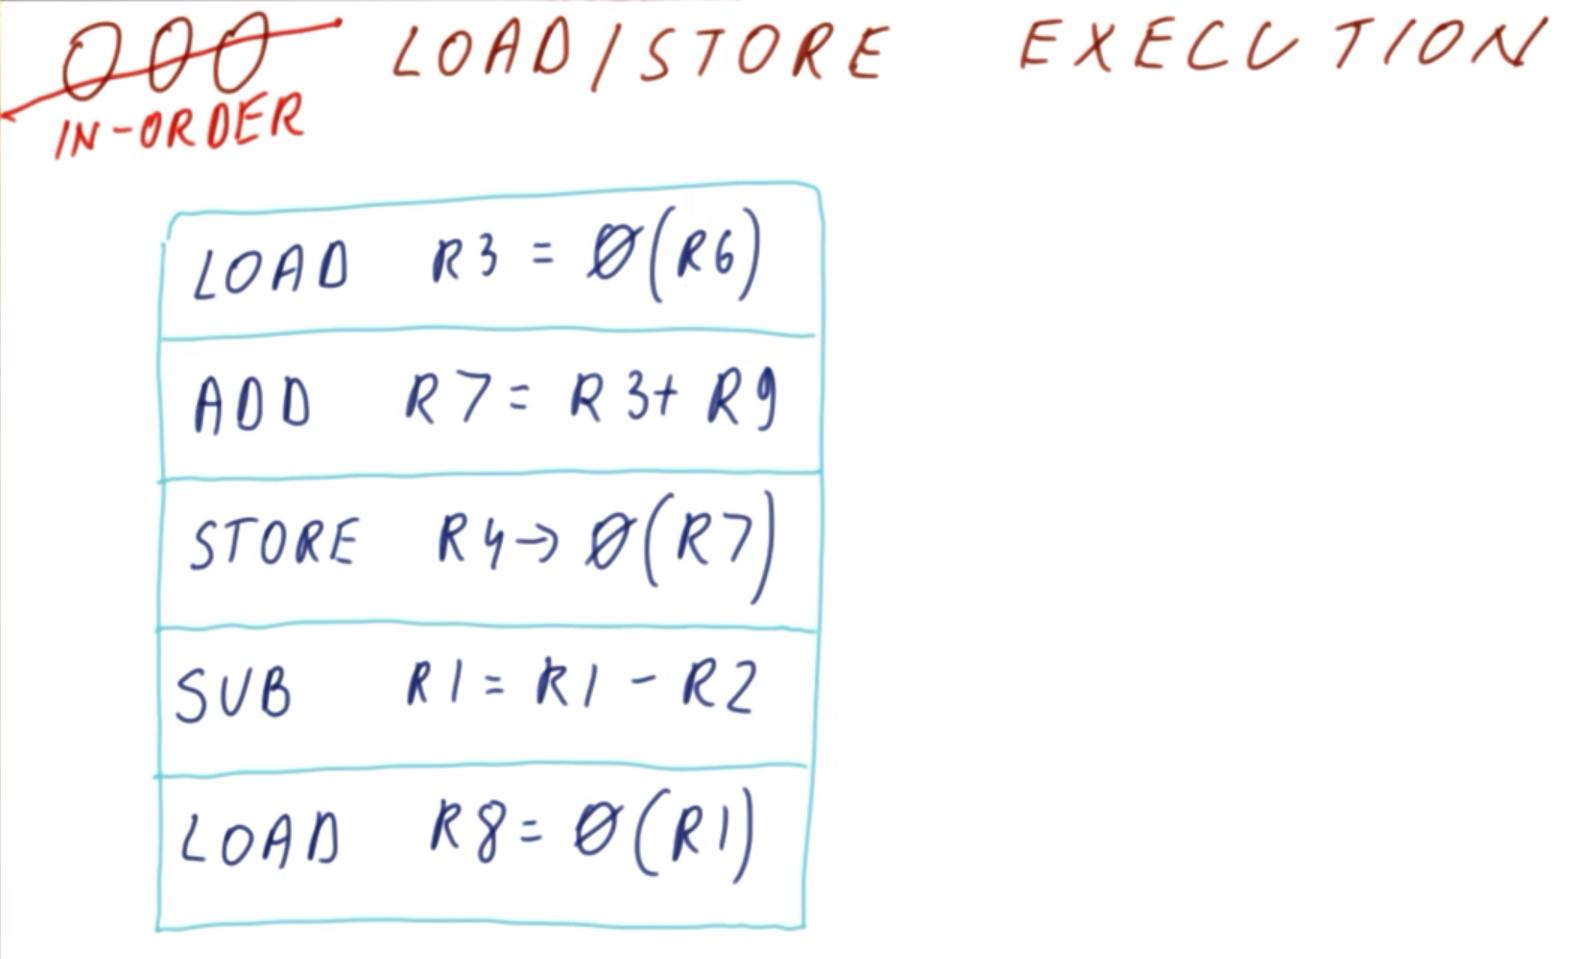 OOO LOAD/STORE EXECUTION
IN-ORDER
LOAD R3 = Ø(R6)
ADD R7 = R3 + R9
STORE R4 → Ø(R7)
SUB R1 = R1 - R2
LOAD R8 = Ø(R1)